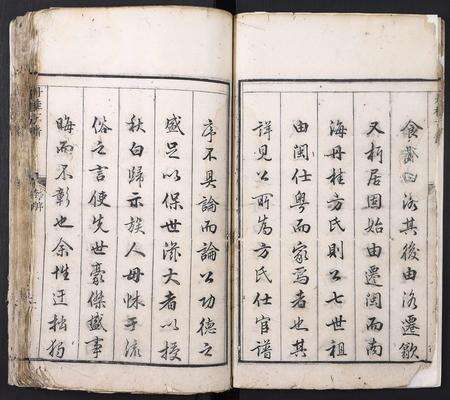 食菸四洛其後由洛遷歙
又析居固始由遷閩而南
海丹桂方氏則公七世祖
由閩仕粤而家焉者也其
詳見公所為方氏仕官譜
序不具論而論公功德之
盛足以保世滋大者以授
秋白歸示族人毋怵于流
俗之言使失世豪傑盛事
晦而不彰也余性迂拙狷